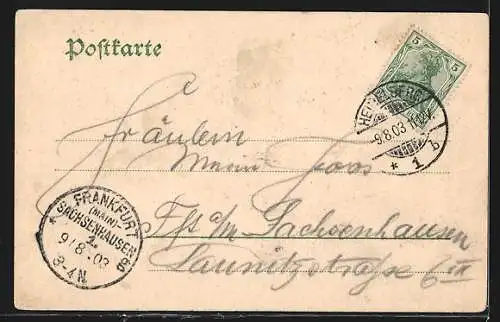 Postkarte
5 5
HEIDELBERG
9.8.03 11-12V
* 1 b
Fräulein
Goos
Ffs a/M - Sachsenhausen
Launitzstraße 6 III
* FRANKFURT
(MAIN)-
SACHSENHAUSEN
1.
9/8.03
3-4N.